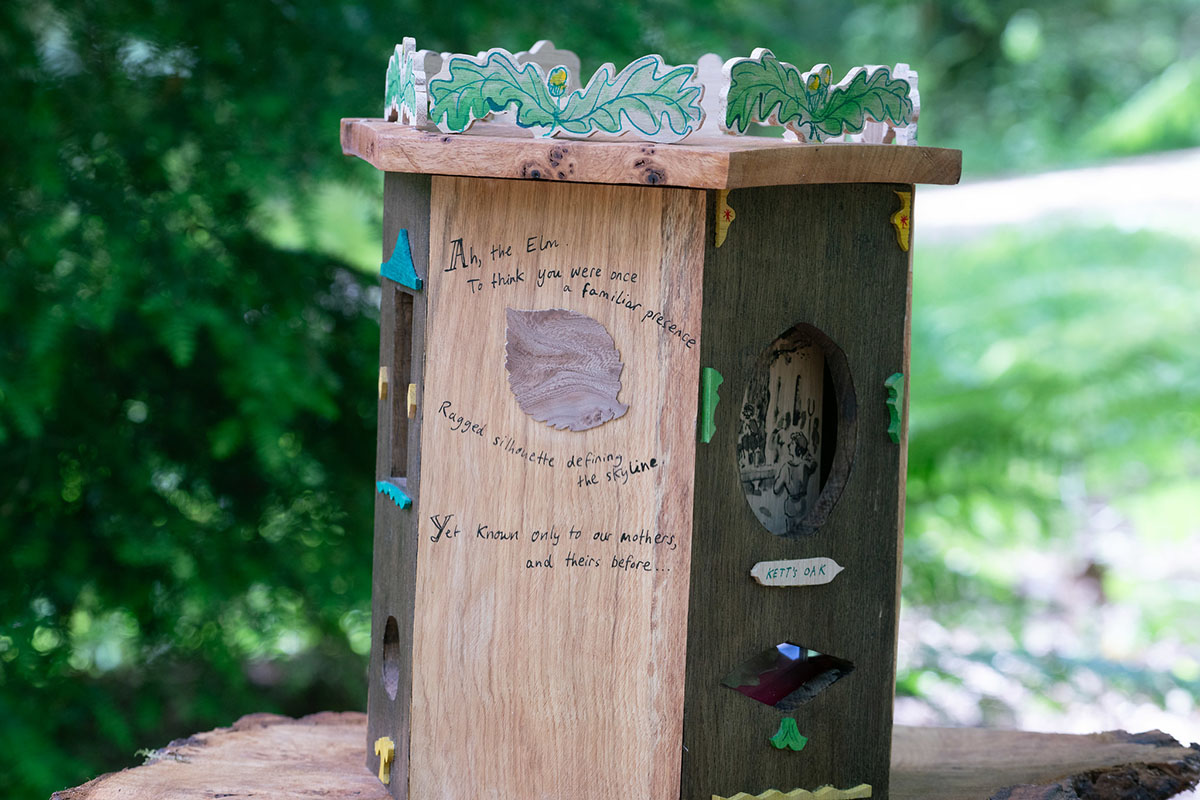 Ah, the Elm.
To think you were once
a familiar presence
Ragged silhouette defining
the skyline
Yet known only to our mothers,
and theirs before...
KETT'S OAK